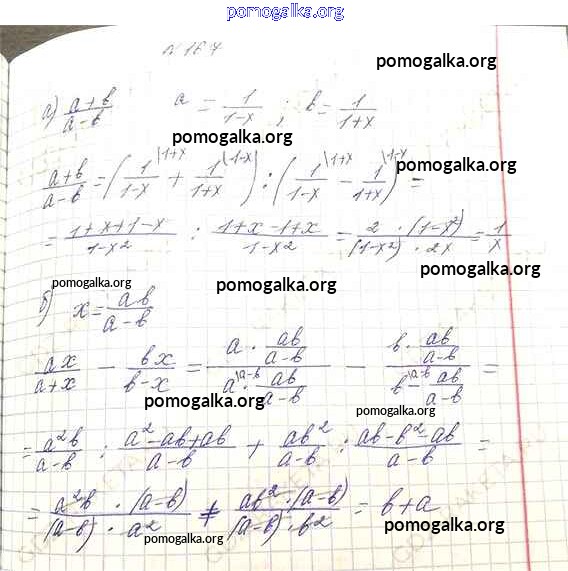 pomogalka.org
N 167
pomogalka.org
а) (a+b)/(a−b)   a = 1/(1−x) ; b = 1/(1+x)
pomogalka.org
(a+b)/(a−b) = (1/(1−x) |1+x + 1/(1+x) |1−x) : (1/(1−x) |1+x − 1/(1+x) |1−x) =
= (1+x+1−x)/(1−x²) : (1+x−1+x)/(1−x²) = (2 · (1−x²))/((1−x²) · 2x) = 1/x
pomogalka.org
pomogalka.org
pomogalka.org
б) x = ab/(a−b)
ax/(a+x) − bx/(b−x) = (a · ab/(a−b))/(a |a−b · ab/(a−b)) − (b · ab/(a−b))/(b |a−b − ab/(a−b)) =
pomogalka.org
pomogalka.org
= a²b/(a−b) : (a²−ab+ab)/(a−b) + ab²/(a−b) : (ab−b²−ab)/(a−b) =
= (a²b · (a−b))/((a−b) · a²) + (ab² · (a−b))/((a−b) · b²) = b+a
pomogalka.org
pomogalka.org